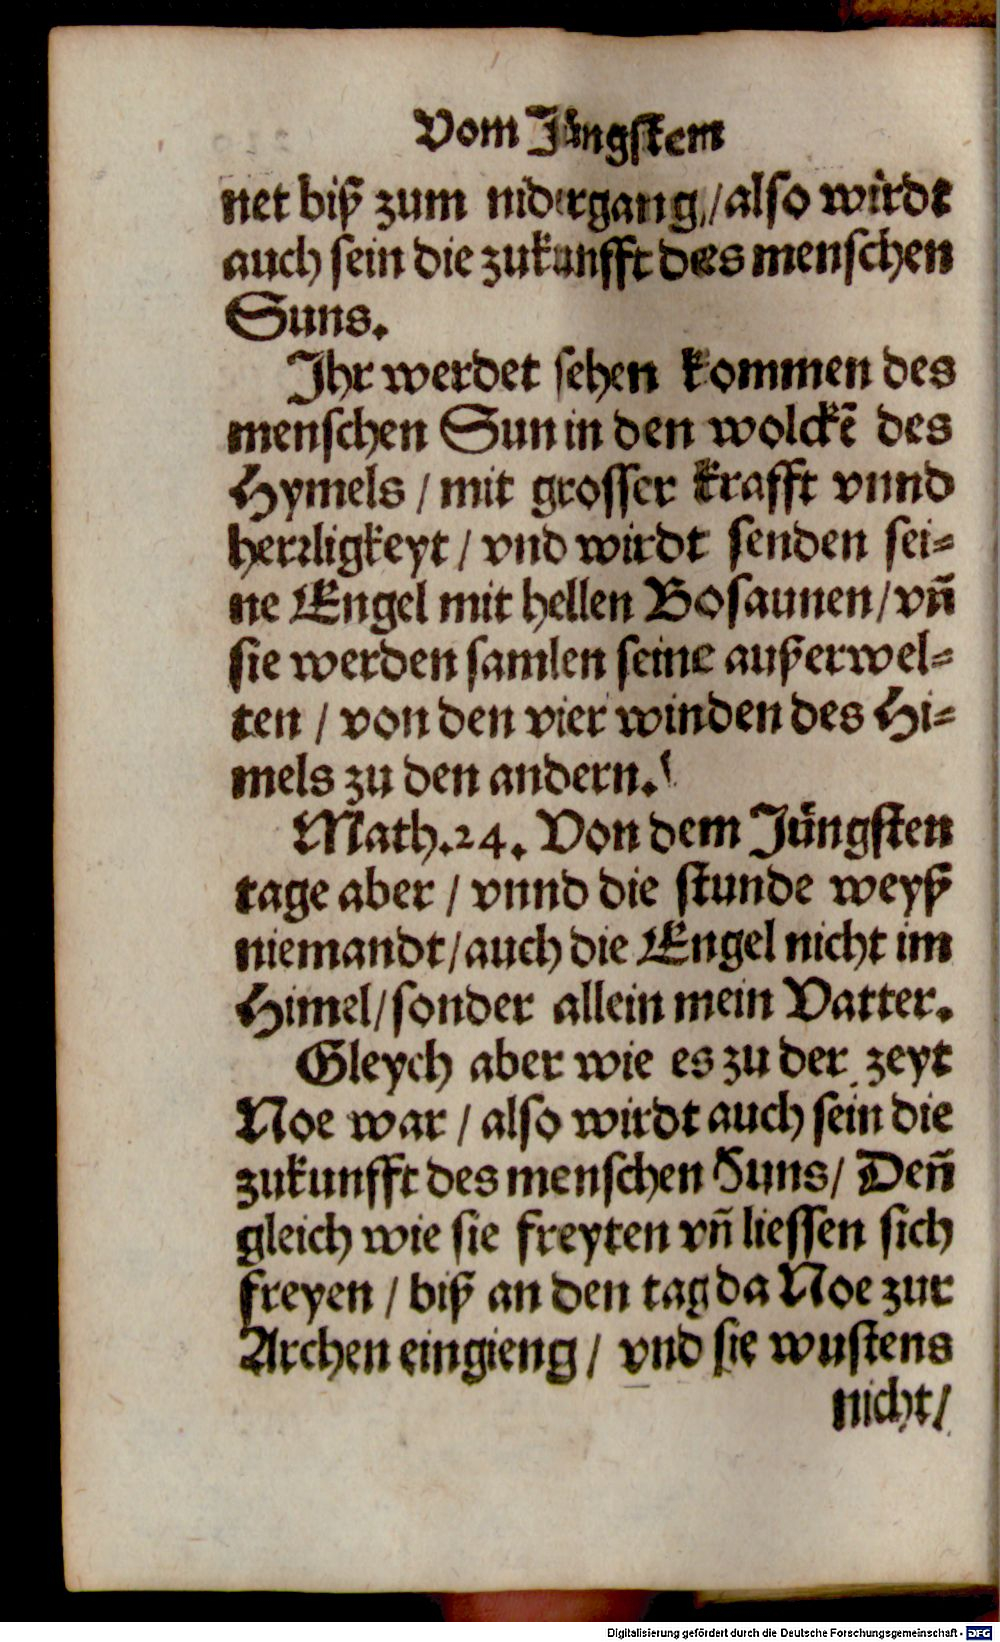 Vom Jüngstem
net biß zum nidergang / also wirdt
auch sein die zukunfft des menschen
Suns.
Ihr werdet sehen kommen des
menschen Sun in den wolckẽ des
Hymels / mit grosser krafft vnnd
herrligkeyt / vnd wirdt senden sei-
ne Engel mit hellen Bosaunen / vñ
sie werden samlen seine außerwel-
ten / von den vier winden des Hi-
mels zu den andern.
Math. 24. Von dem Jüngsten
tage aber / vnnd die stunde weyß
niemandt / auch die Engel nicht im
Himel / sonder allein mein Vatter.
Gleych aber wie es zu der zeyt
Noe war / also wirdt auch sein die
zukunfft des menschen Suns / Deñ
gleich wie sie freyten vñ liessen sich
freyen / biß an den tag da Noe zur
Archen eingieng / vnd sie wustens
nicht /
Digitalisierung gefördert durch die Deutsche Forschungsgemeinschaft - DFG